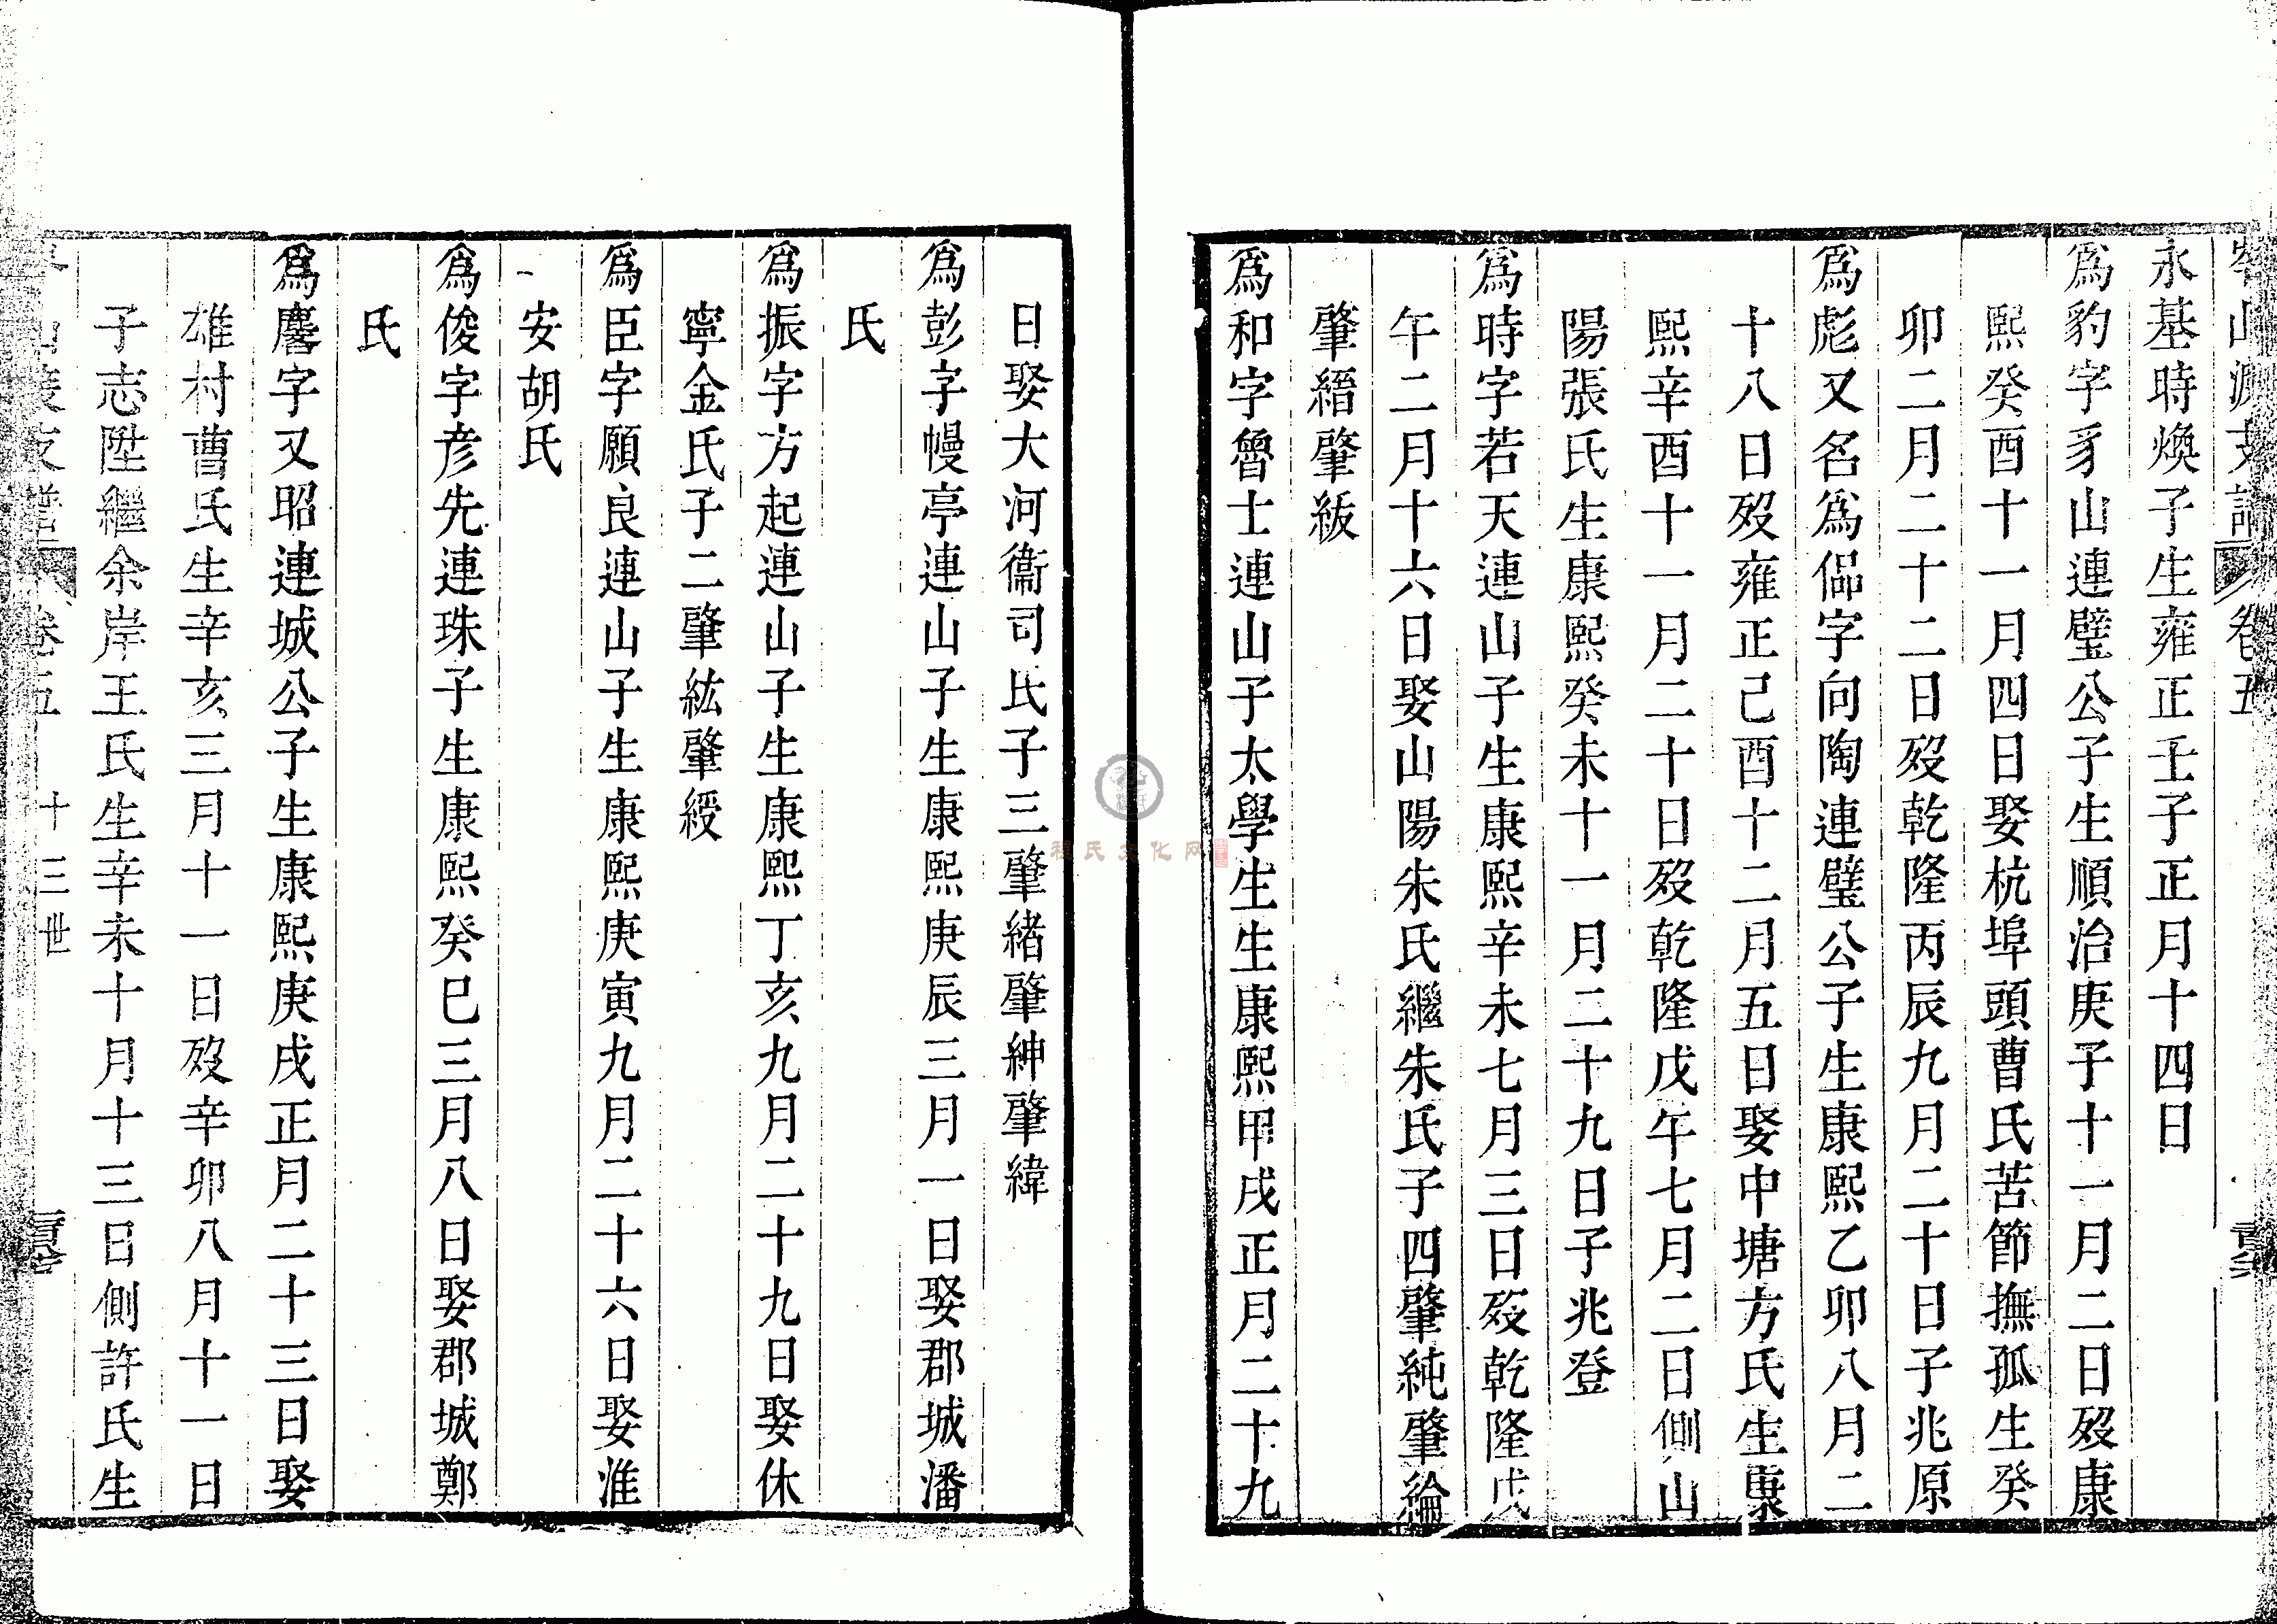 岑山渡支譜 卷五
永基時煥子生雍正壬子正月十四日
爲豹字豸山連璧公子生順治庚子十一月二日歿康
熙癸酉十一月四日娶杭埠頭曹氏苦節撫孤生癸
卯二月二十二日歿乾隆丙辰九月二十日子兆原
爲彪又名爲偘字向陶連璧公子生康熙乙卯八月二
十八日歿雍正己酉十二月五日娶中塘方氏生康
熙辛酉十一月二十日歿乾隆戊午七月二日側山
陽張氏生康熙癸未十一月二十九日子兆登
爲時字若天連山子生康熙辛未七月三日歿乾隆戊
午二月十六日娶山陽朱氏繼朱氏子四肇純肇綸
肇縉肇紱
爲和字魯士連山子太學生生康熙甲戌正月二十九
日娶大河衞司氏子三肇緒肇紳肇緯
爲彭字幔亭連山子生康熙庚辰三月一日娶郡城潘
氏
爲振字方起連山子生康熙丁亥九月二十九日娶休
寧金氏子二肇紘肇綬
爲臣字願良連山子生康熙庚寅九月二十六日娶淮
安胡氏
爲俊字彥先連珠子生康熙癸巳三月八日娶郡城鄭
氏
爲麐字又昭連城公子生康熙庚戌正月二十三日娶
雄村曹氏生辛亥三月十一日歿辛卯八月十一日
子志陞繼余岸王氏生辛未十月十三日側許氏生
山渡支譜 卷五 十三世
程氏文化网